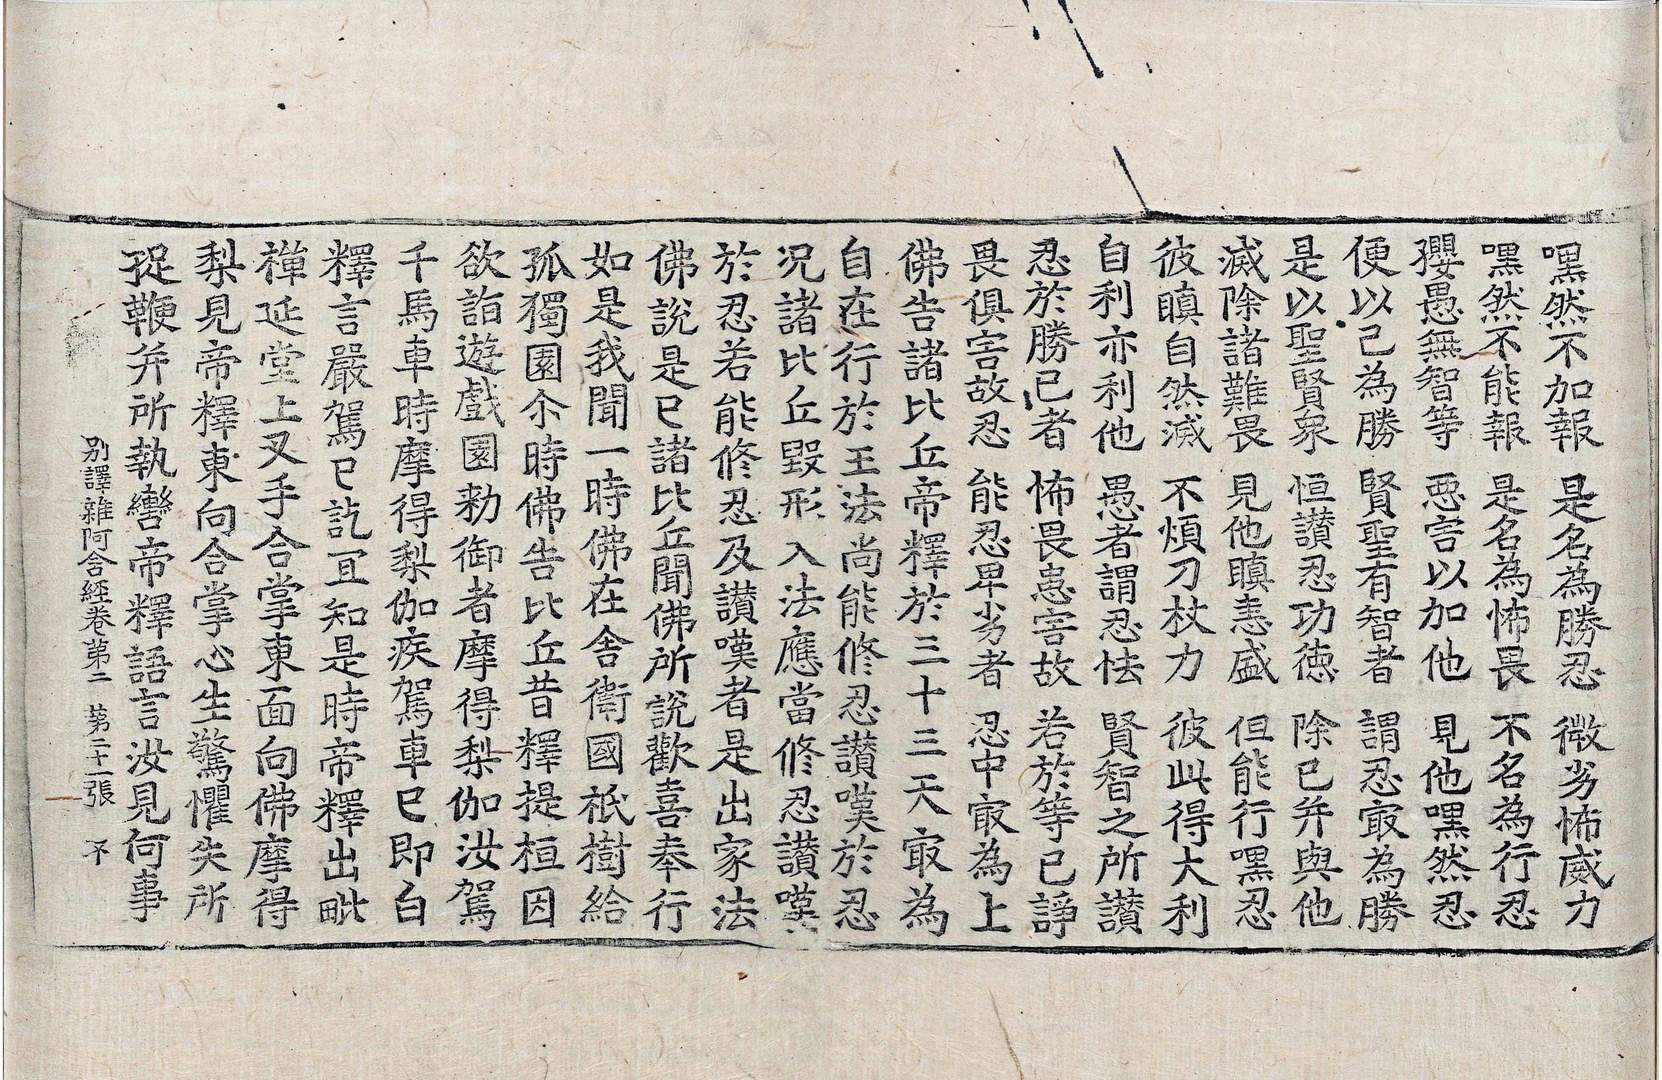 嘿然不加報　是名為勝忍　微劣怖威力
嘿然不能報　是名為怖畏　不名為行忍
孾愚無智等　惡害以加他　見他嘿然忍
便以己為勝　賢聖有智者　謂忍㝡為勝
是以聖賢衆　恒讃忍功德　除已并與他
滅除諸難畏　見他瞋恚盛　但能行嘿忍
彼瞋自然滅　不煩刀杖力　彼此得大利
自利亦利他　愚者謂忍怯　賢智之所讃
忍於勝已者　怖畏患害故　若於等已諍
畏俱害故忍　能忍卑劣者　忍中㝡為上
佛告諸比丘帝釋於三十三天㝡為
自在行於王法尚能修忍讃嘆於忍
況諸比丘毀形入法應當修忍讃嘆
於忍若能修忍及讃嘆者是出家法
佛說是已諸比丘聞佛所說歡喜奉行
如是我聞一時佛在舍衛國祇樹給
孤獨園尒時佛告比丘昔釋提桓因
欲詣遊戲園勑御者摩得梨伽汝駕
千馬車時摩得梨伽疾駕車已即白
釋言嚴駕已訖冝知是時帝釋出毗
禪延堂上叉手合掌東面向佛摩得
梨見帝釋東向合掌心生驚懼失所
捉鞭并所執轡帝釋語言汝見何事
別譯雜阿含經卷第二　第二十一張　不